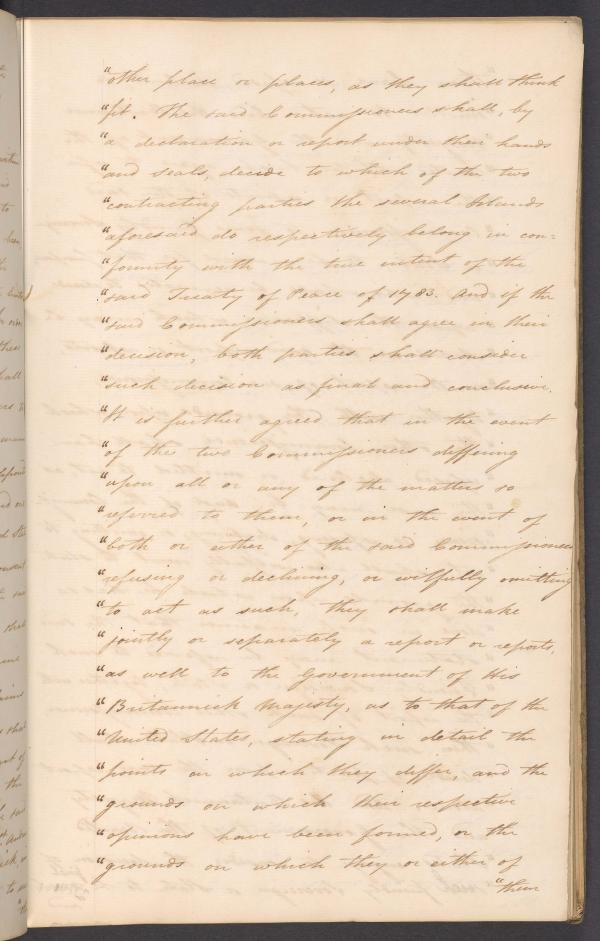 "other place or places, as they shall think
"fit. The said Commissioners shall, by
"a declaration or report under their hands
"and seals, decide to which of the two
"contracting parties the several Islands
"aforesaid do respectively belong in con=
"formity with the true intent of the
"said Treaty of Peace of 1783. And if the
"said Commissioners shall agree in their
"decision, both parties shall consider
"such decision as final and conclusive.
"It is further agreed that in the event
"of the two Commissioners differing
"upon all or any of the matters so
"referred to them, or in the event of
"both or either of the said Commissioners
"refusing or declining, or wilfully omitting
"to act as such, they shall make
"jointly or separately a report or reports,
"as well to the Government of His
"Britannick Majesty, as to that of the
"United States, stating in detail the
"points on which they differ, and the
"grounds on which their respective
"opinions have been formed, or the
"grounds on which they or either of
"them